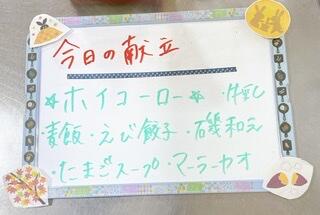 今日の献立
☆ホイコーロー☆ ・牛乳
・麦飯・えび餃子・磯和え
・たまごスープ・マーラーカオ